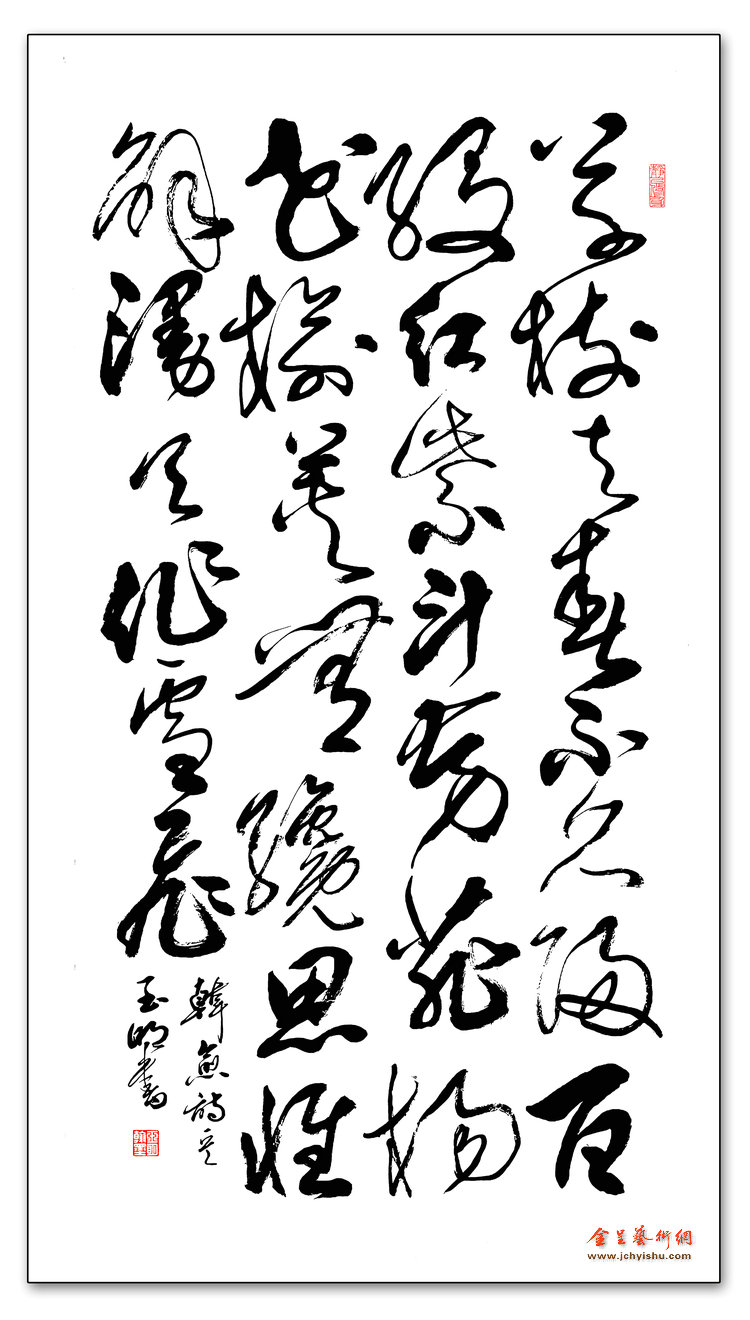 草樹知春不久歸百
般紅紫斗芳菲楊
花榆莢無纔思惟
解漫天作雪飛
韓愈詩
明書
金呈藝術網
www.jchyishu.com